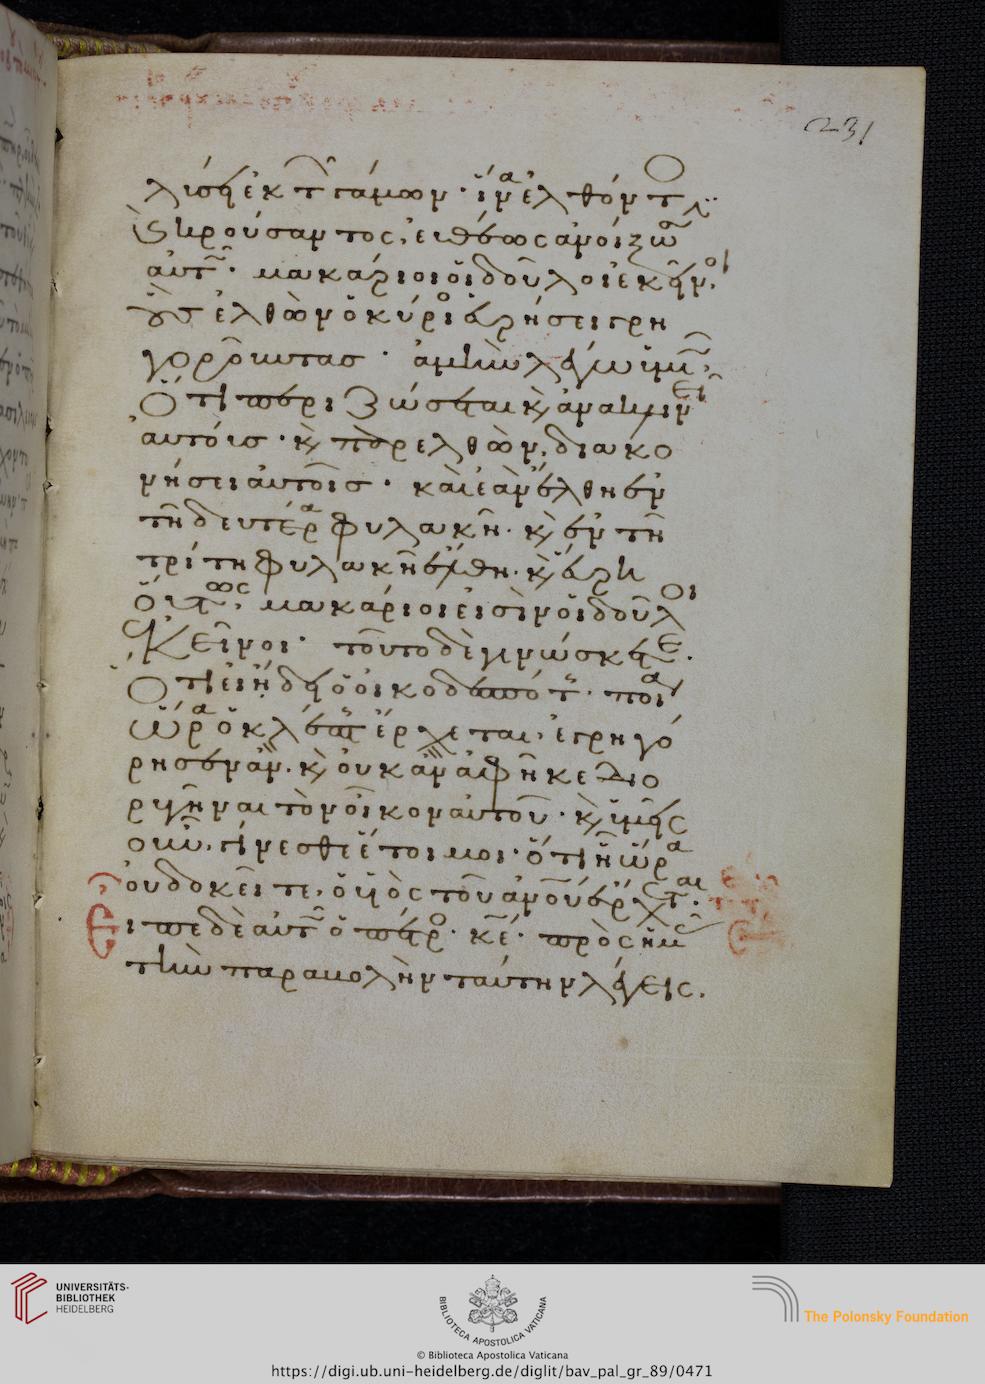 231
λύσει ἐκ τ̂ γάμων· ἵνα ἐλθόντ
κ κρούσαντος, εὐθέως ἀνοίξω
αὐτ· μακάριοι οἱ δοῦλοι ἐκεῖνοι,
οὓς ἐλθὼν ὁ κύριος εὑρήσει γρη
γοροῦντας· ἀμὴν λέγω ὑμ,
Ὅτι περιζώσεται κ ἀνακλινεῖ
αὐτοὺς· κ παρελθὼν, διακο
νήσει αὐτοῖς· καὶ ἐὰν ἔλθη ἐν
τῆ δευτέρα φυλακῆ· κ ἐν τῆ
τρίτη φυλακῆ ἔλθη· κ εὕρη
οὕτως, μακάριοι εἰσὶν οἱ δοῦλοι
ἐκεῖνοι· τοῦτο δὲ γινώσκετε·
Ὅτι εἰ ἤδει ὁ οἰκοδεσπότ· ποία
ὥρα ὁ κλέπτ ἔρχεται, ἐγρηγό
ρησεν ἂν· κ οὐκ ἂν ἀφῆκε διο
ρυγῆναι τὸν οἶκον αὐτοῦ· κ ὑμεῖς
οὖν, γίνεσθε ἕτοιμοι· ὅτι ἧ ὥρα
οὐ δοκεῖτε, ὁ υἱὸς τοῦ ἀνου ἔρχεται·
Εἶπε δὲ αὐτ ὁ πέτρος· κε· πρὸς ἡμ
τὴν παραβολὴν ταύτην λέγεις.
UNIVERSITÄTS-
BIBLIOTHEK
HEIDELBERG
BIBLIOTECA APOSTOLICA VATICANA
The Polonsky Foundation
© Biblioteca Apostolica Vaticana
https://digi.ub.uni-heidelberg.de/diglit/bav_pal_gr_89/0471